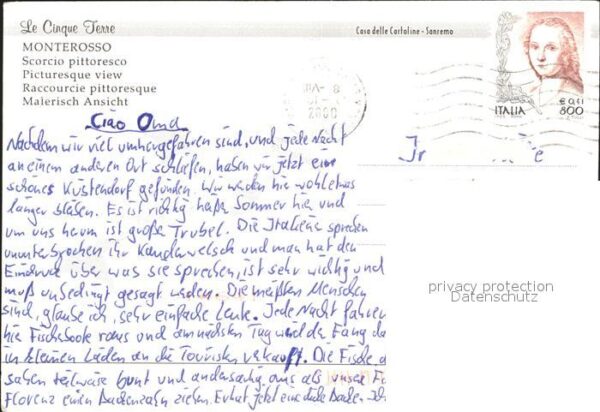 Le Cinque Terre
MONTEROSSO
Scorcio pittoresco
Picturesque view
Raccourcie pittoresque
Malerisch Ansicht
Casa delle Cartoline - Sanremo
ITALIA
€ 0,41
800
2000
Ciao Oma
Nachdem wir viel umhergefahren sind, und jede Nacht
an einem anderen Ort schliefen, haben wir jetzt ein
schönes Küstendorf gefunden. Wir werden hier wohl etwas
länger bleiben. Es ist richtig heißer Sommer hier und
um uns herum ist großer Trubel. Die Italiener sprechen
ununterbrochen ihr Kauderwelsch und man hat den
Eindruck über was sie sprechen, ist sehr wichtig und
muß unbedingt gesagt werden. Die meißten Menschen
sind, glaube ich, sehr einfache Leute. Jede Nacht fahren
hier Fischerboote raus und am nächsten Tag wird der Fang da
in kleinen Läden an die Touristen verkauft. Die Fische
sahen teilweise bunt und andersartig aus als unsere
Florenz einen Backenzahn ziehen. Er hat jetzt eine dicke Backe.
privacy protection
Datenschutz